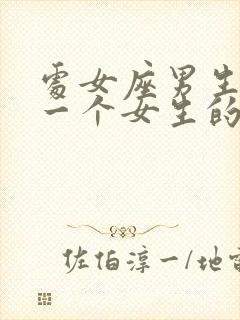 處女座男生
一个女生的
佐伯淳一/地